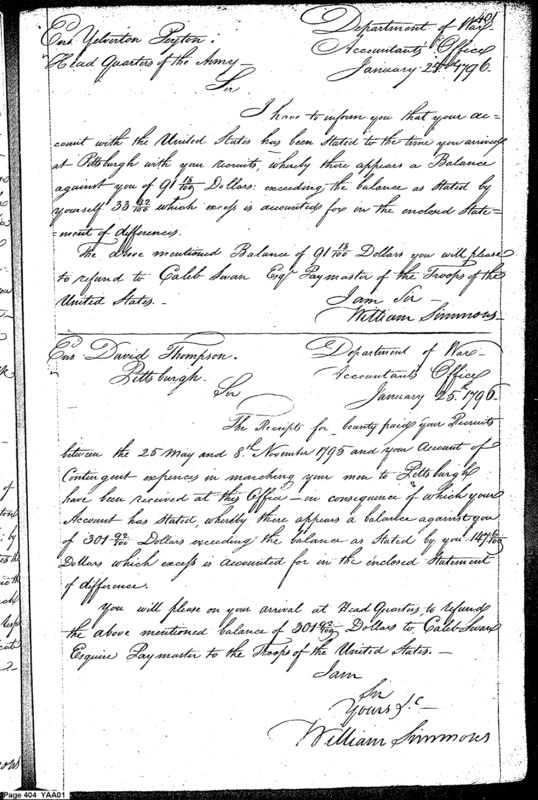 Ens Yelverton Peyton.
Head Quarters of the Army
Department of War
Accountants Office
January 25th 1796.
Sir
I have to inform you that your ac=
count with the United States has been stated to the time you arrived
at Pittsburgh with your recruits, whereby there appears a Balance
against you of 91 18/100 Dollars: exceeding the balance as stated by
yourself 33 92/100 which excess is accounted for in the enclosed State=
=ment of differences.
The above mentioned Balance of 91 18/100 Dollars you will please
to refund to Caleb Swan Esqr Paymaster of the Troops of the
United States. –
I am Sir –
William Simmons
Ens David Thompson.
Pittsburgh.
Department of War
Accountants Office
January 25th 1796.
Sir
The Receipts for bounty paid your Recruits
between the 25 May and 8th November 1795 and your Account of
Contingent expences in marching your men to Pittsburgh
have been received at this Office – in consequence of which your
Account has Stated, whereby there appears a balance against you
of 301 92/100 Dollars exceeding the balance as Stated by you 147
Dollars which excess is accounted for in the inclosed Statement
of difference.
You will please on your arrival at Head Quarters, to refund
the above mentioned balance of 301 92/100 Dollars to Caleb Swan
Esquire Paymaster to the Troops of the United States. –
I am
Sir
Yours &c –
William Simmons
Page 404 YAA01